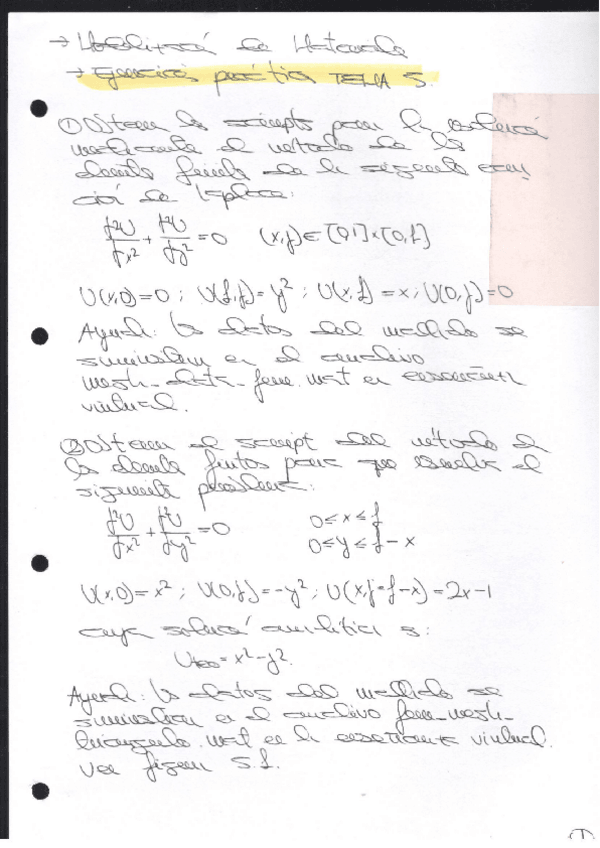 → Modelización de Materiales
→ Ejercicios práctica TEMA 5.
① Obtener los scripts para la resolución
mediante el método de los
elementos finitos de la siguiente ecua-
ción de Laplace:
∂²U/∂x² + ∂²U/∂y² = 0 (x,y) ∈ [0,1]×[0,1]
U(x,0)=0; U(1,y)=y²; U(x,1)=x; U(0,y)=0
Ayuda: los datos del mallado se
suministran en el archivo
mesh_data_fem.mat en
virtual.
② Obtener el script del método de
los elementos finitos para que resuelva el
siguiente problema:
∂²U/∂x² + ∂²U/∂y² = 0 0≤x≤1
0≤y≤1-x
U(x,0)=x²; U(0,y)=-y²; U(x,y=1-x)=2x-1
cuya solución analítica es:
U = x²-y².
Ayuda: los datos del mallado se
suministran en el archivo fem_mesh_
triangulo.mat en la virtual.
ver figura 5.1.
①